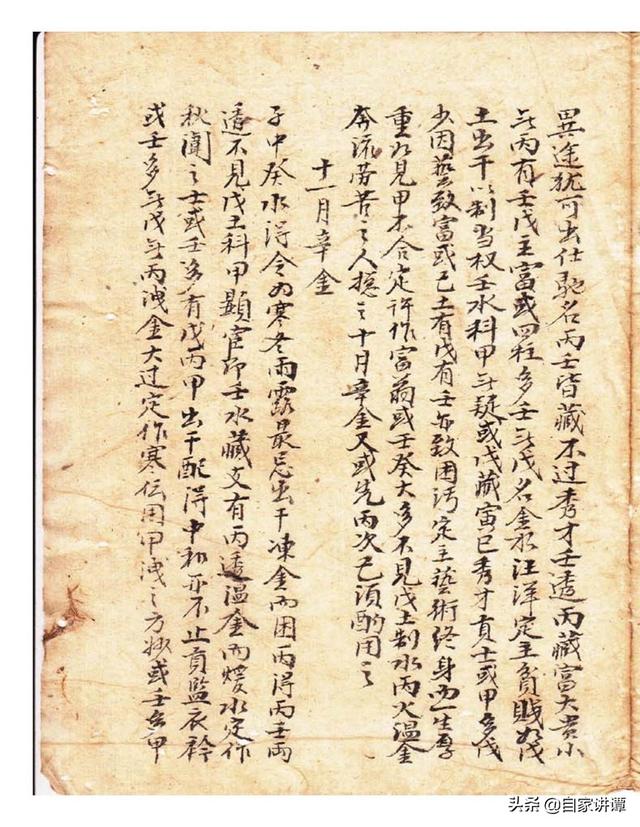 異途犹可出仕馳名丙壬皆藏不过秀才壬透丙藏富大贵小
无丙有壬戊主富或四柱多壬无戊名金水汪洋定主貧賤如戊
土出干以制当权壬水科甲无疑或戊藏寅巳秀才貢士或甲多戊
少因藝致富或己土有戊有壬亦致困污定主藝術終身而一生辱
重如見甲不合定許作富翁或壬癸大多不見戊土制水丙火温金
奔流劳苦之人揔之十月辛金又或先丙次己須酌用之
十一月辛金
子中癸水得令为寒冬雨露最忌出干凍金而困丙得丙壬両
透不見戊土科甲顯宦即壬水藏支有丙透温金而煖水定作
秋闈之士或壬多有戊丙甲出干配得中和亦不止貢監衣衿
或壬多无戊无丙洩金大过定作寒伝用甲洩之方
头条 @自家讲谭